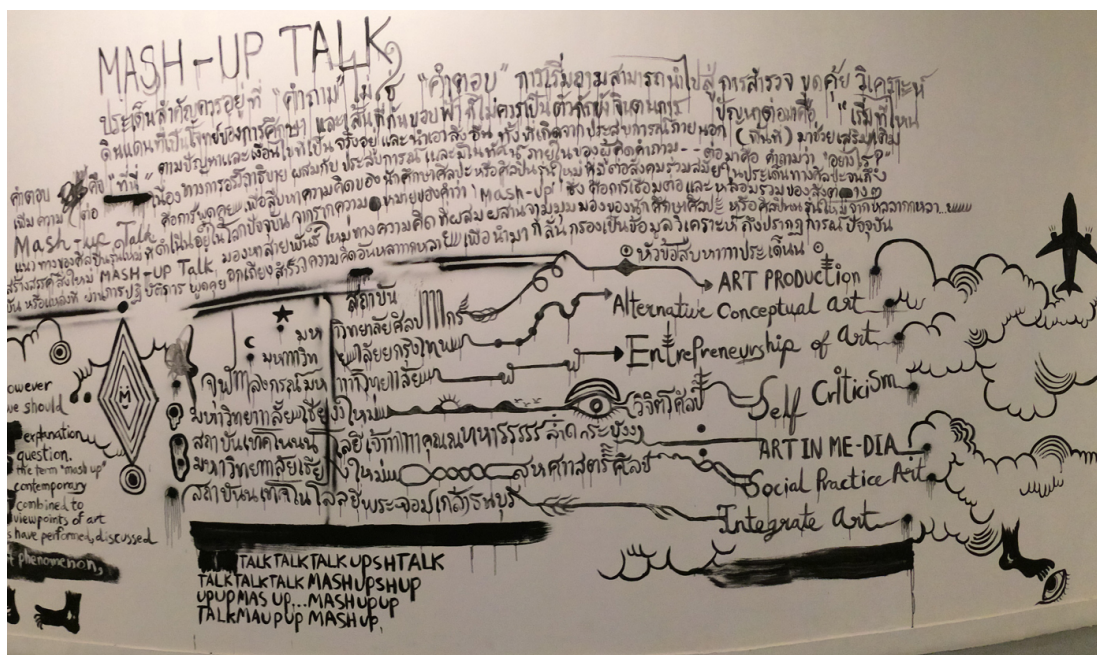 MASH-UP TALK
ประเด็นสำคัญควรอยู่ที่ "คำถาม" ไม่ใช่ "คำตอบ" การเริ่มถามสามารถนำไปสู่ การสำรวจ ขุดคุ้ย วิเคราะห์
ดินแดนที่เป็นโจทย์ของการศึกษา และเส้นที่กั้นขอบฟ้า ก็ไม่ควรเป็นตัวกักขังจินตนาการ ปัญหาต่อมาคือ "เริ่มที่ไหน"
คำตอบ คือ "ที่นี่" ตามปัญหาและเงื่อนไขที่เป็นจริงอยู่ และนำเอาสิ่งอื่น ทั้งที่เกิดจากประสบการณ์ภายนอก (พื้นที่) มาช่วยเสริมเติม
เพิ่มความ ต่อเนื่อง ทางการอรรถาธิบาย ผสมกับประสบการณ์ และมโนทัศน์ ภายในของผู้คิดคำถาม -- ต่อมาคือ คำถามว่า "อย่างไร?"
Mash-up Talk คือการพูดคุย เพื่อสืบหาความคิดของนักศึกษาศิลปะ หรือศิลปินรุ่นใหม่ ที่มีต่อสังคมร่วมสมัยในประเด็นทางศิลปะจนถึง
แนวทางของศิลปินรุ่นใหม่ที่ดำเนินอยู่ในโลกปัจจุบัน จากความหมายของคำว่า 'Mash-up' ซึ่ง คือการเชื่อมต่อ และหลอมรวมของสิ่งต่างๆ
สร้างสรรค์สิ่งใหม่ MASH-UP Talk มองหาสายพันธุ์ใหม่ทางความคิดที่ผสมผสานจากมุมมองของนักศึกษาศิลปะ หรือศิลปินรุ่นใหม่จากหลากหลาย...
ผ่านการปฏิบัติการ พูดคุย ถกเถียง สำรวจความคิดอันหลากหลาย เพื่อนำมา กลั่นกรองเป็นข้อมูลวิเคราะห์ถึงปรากฏการณ์ปัจจุบัน
หัวข้อสืบหาประเด็น
สถาบัน
ART PRODUCTION
มหาวิทยาลัยศิลปากร
Alternative Conceptual Art
มหาวิทยาลัยกรุงเทพ
Entrepreneurship of Art
จุฬาลงกรณ์มหาวิทยาลัย
วิจิตรศิลป์
Self CriticiSm
มหาวิทยาลัยเชียงใหม่
สถาบันเทคโนโลยีเจ้าคุณทหารรรรร ลาดกระบัง
ART IN ME-DIA
มหาวิทยาลัยเชียงใหม่ สหศาสตร์ศิลป์
Social Practice Art
สถาบันเทคโนโลยีพระจอมเกล้าธนบุรี
Integrate Art
owever
we should
explanation
question.
the term "mash up"
contemporary
combined to
viewpoints of art
have performed, discussed
phenomenon,
TALKTALKTALKUPSHTALK
TALKTALKTALK MASHUPSHUP
UPUPMAS UP...MASHUPUP
TALKMAUPUP MASHUP,